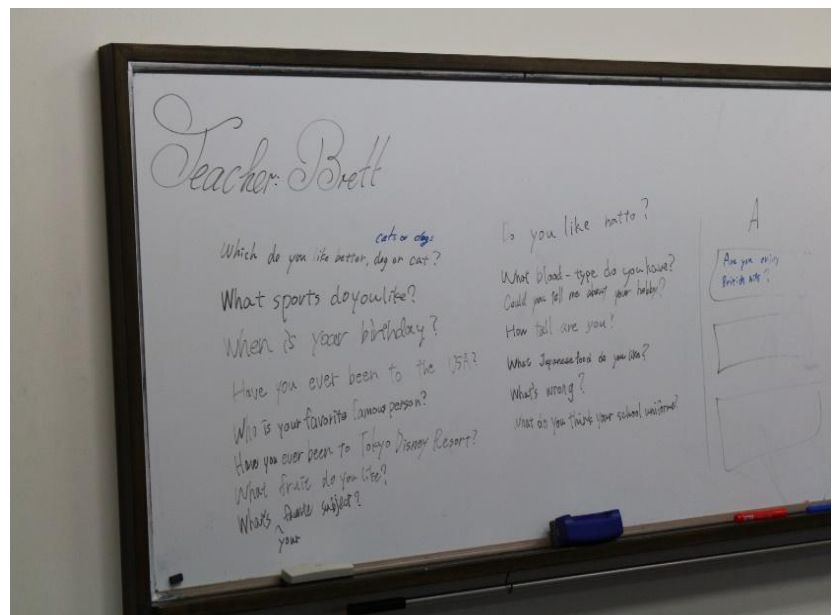 Teacher: Brett
cats or dogs
Which do you like better, dog or cat?
What sports do you like?
When is your birthday?
Have you ever been to the USA?
Who is your favorite famous person?
Have you ever been to Tokyo Disney Resort?
What fruit do you like?
What's favorite subject?
your
Do you like natto?
What blood-type do you have?
Could you tell me about your hobby?
How tall are you?
What Japanese food do you like?
What's wrong?
What do you think your school uniform?
A
Are you enjoy
British